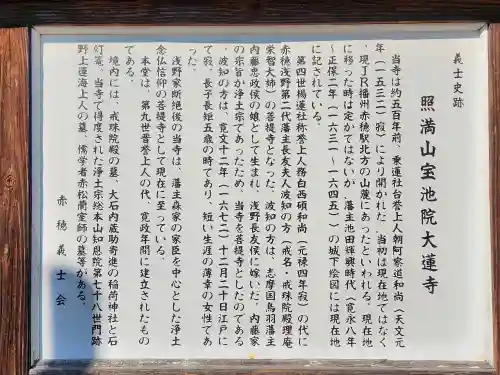 義士史跡
照満山宝池院大蓮寺
当寺は約五百年前、乗運社台誉上人朝阿家道和尚（天文元
年（一五三二）寂）により開かれた。当初は現在地ではなく
、現JR播州赤穂駅北方の山麓にあったといわれる。現在地
に移った時は定かではないが、藩主池田輝興時代（寛永八年
～正保二年（一六三一～一六四五））の城下絵図には現在地
に記されている。
第四世楊蓮社称誉上人務白西碩和尚（元禄四年寂）の代に
赤穂浅野第二代藩主長友夫人波知の方（戒名・戒珠院殿理庵
栄智大姉）の菩提寺となった。波知の方は、志摩国鳥羽藩主
内藤忠政侯の娘として生まれ、浅野長友侯に嫁いだ。内藤家
の宗旨が浄土宗であったため、当寺を菩提寺としたのである
。波知の方は、寛文十二年（一六七二）十二月二十日江戸に
て寂。長子長矩五歳の時であり、短い生涯の薄幸の女性であ
った。
浅野家断絶後の当寺は、藩主森家の家臣を中心とした浄土
念仏信仰の菩提寺として現在に至っている。
本堂は、第九世晋誉上人の代、寛政年間に建立されたもの
である。
境内には、戒珠院殿の墓、大石内蔵助寄進の稲荷神社と石
灯篭、当寺で得度された浄土宗総本山知恩院第七十八世門跡
野上運海上人の墓、儒学者赤松蘭室師の墓等がある。
赤穂義士会